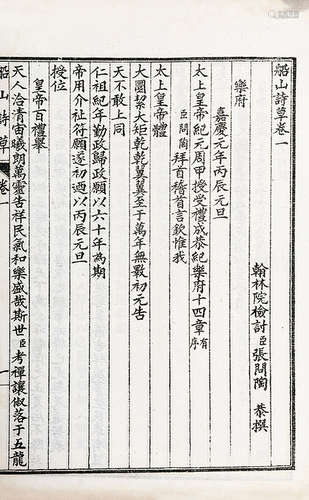 船山詩草卷一
翰林院檢討臣張問陶 恭撰
樂府
嘉慶元年丙辰元旦
太上皇帝紀元周甲授受禮成恭紀樂府十四章有序
臣問陶拜首稽首言欽惟我
太上皇帝體
大圜絜大矩乾乾翼翼至于萬年無斁初元告
天不敢上同
仁祖紀年勤政歸政願以六十年為期
帝用介祉符願遂初迺以丙辰元旦
授位
皇帝百禮舉
天人洽清宙曦朗萬靈告祥民氣和樂盛哉斯世臣考禪讓俶落于五龍
船山詩草 卷一 一